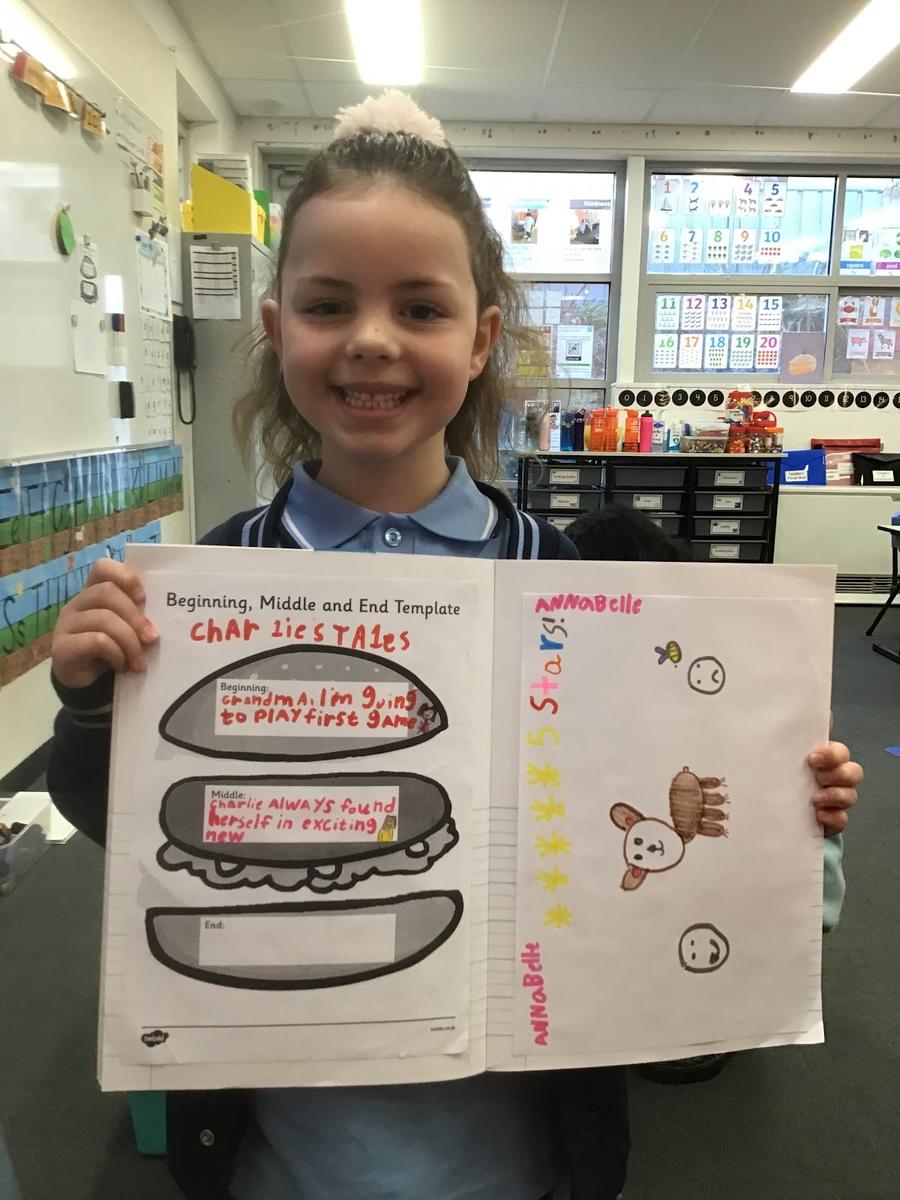 Beginning, Middle and End Template
ChAr lie's TAles
Beginning:
GrandmA, I'm going
to PlAY first game
Middle:
Charlie AlWAYS found
herself in exciting
new
End:
twinkl
twinkl.co.uk
ANNABelle
5 Stars!
ANNaBelle
Kindness
1 2 4 5
6 7 8 9 10
11 12 13 14 15
16 17 18 19 20
0 2 3 4 5 9 10 11 12 13 14